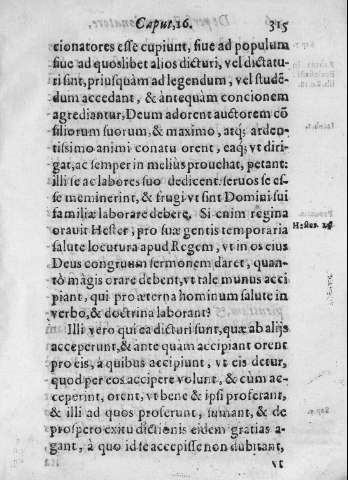 Caput.16. 315
cionatores esse cupiunt, siue ad populum
siue ad quoslibet alios dicturi, vel dictatu-
ri sint, priusquàm ad legendum, vel studē-
dum accedant, & àntequàm concionem
agrediantur, Deum adorent auctorem cō
siliorum suorum, & maximo, atq; arden-
tissimo animi conatu orent, eaq; vt diri-
gat, ac semper in meliùs prouehat, petant:
illi se ac labores suo dedicent: seruos se es-
se meminerint, & frugi vt sint Domini sui
familiæ laborare debere. Si enim regina
orauit Hester, pro suæ gentis temporaria
Hester. 14
salute locutura apud Regem, vt in os eius
Deus congruum sermonem daret, quan-
tò màgis orare debent, vt tale munus acci
piant, qui pro æterna hominum salute in
verbo, & doctrina laborant?
Illi vero qui ea dicturi sunt, quæ ab alijs
acceperunt, & ante quàm accipiant orent
pro eis, à quibus accipiunt, vt eis detur,
quod per eos accipere volunt, & cùm ac-
ceperint, orent, vt bene & ipsi proferant,
& illi ad quos proferunt, sumant, & de
prospero exitu dictionis eidem gratias a-
gant, à quo id se accepisse non dubitant,
vt